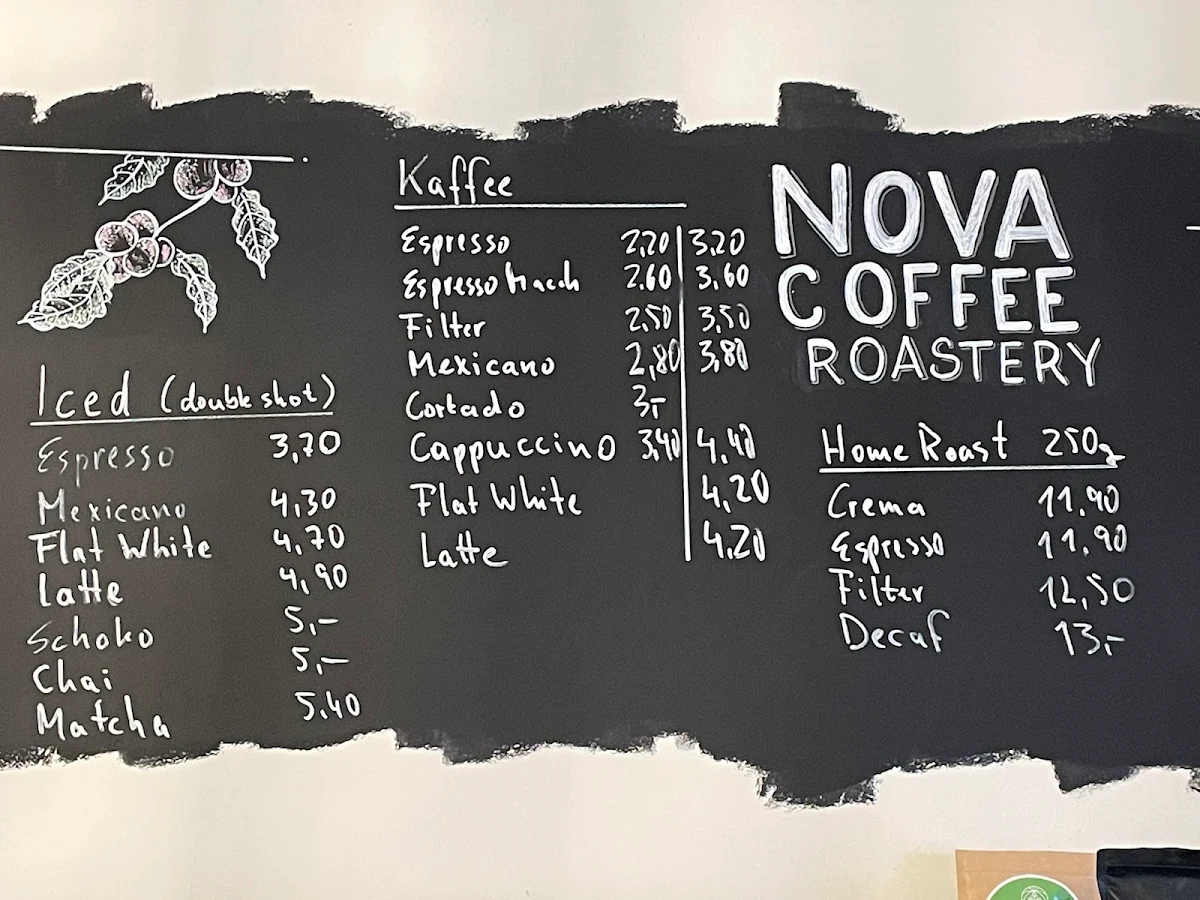 Iced (double shot)
Espresso 3,70
Mexicano 4,30
Flat White 4,70
Latte 4,90
Schoko 5,-
Chai 5,-
Matcha 5,40
Kaffee
Espresso 2,20 3,20
Espresso Macch 2.60 3,60
Filter 2,50 3,50
Mexicano 2,80 3,80
Cortado 3,-
Cappuccino 3,40 4,40
Flat White 4,20
Latte 4,20
NOVA
COFFEE
ROASTERY
Home Roast 250g
Crema 11,90
Espresso 11,90
Filter 12,50
Decaf 13,-